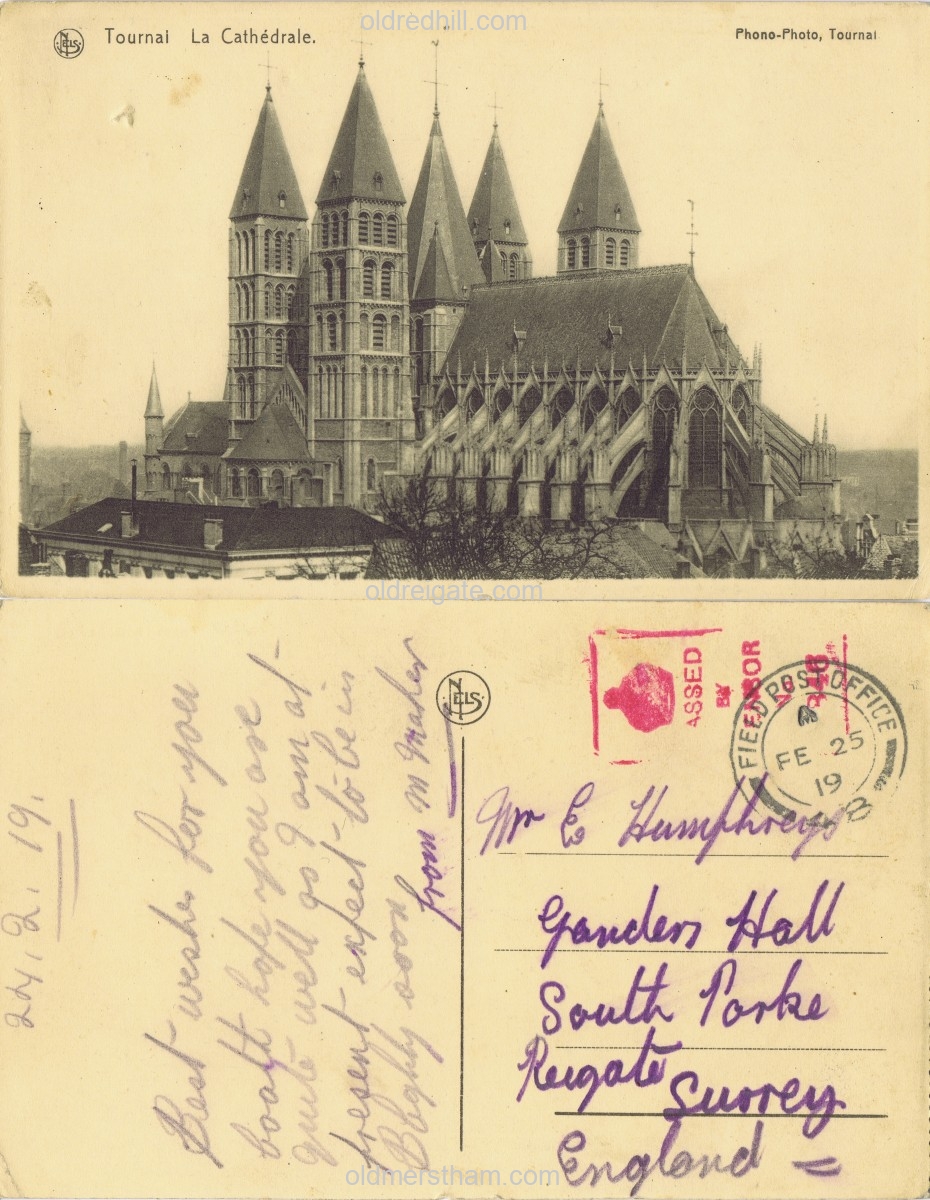 oldredhill.com
NELS
Tournai La Cathédrale.
Phono-Photo, Tournai
oldreigate.com
24.2.19.
Best wishes for you
boath hope you are
quite well as I am at
present expect to be in
Blighty soon
from M Maher
NELS
ASSED
BY
FIELD POST OFFICE
FE 25
19
Mr E Humphreys
Ganders Hall
South Parke
Reigate
Surrey
England
oldmerstham.com